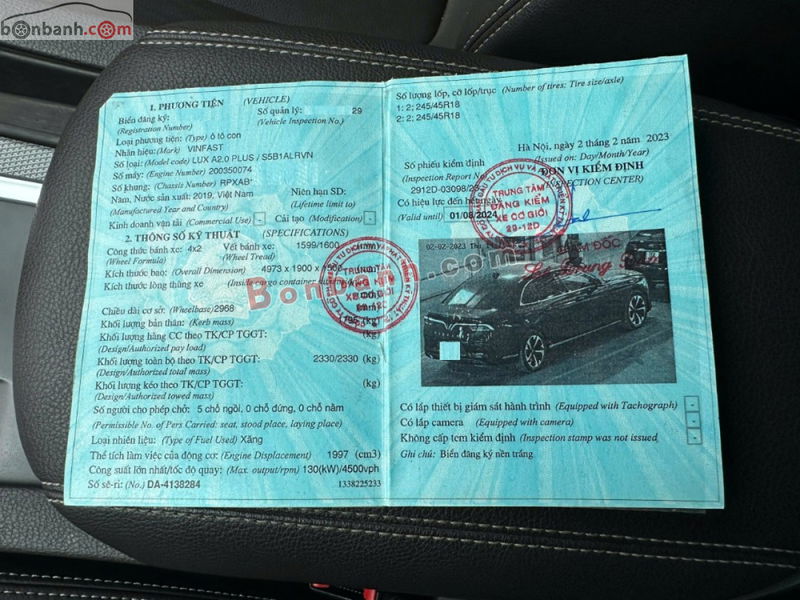 bonbanh.com
1. PHƯƠNG TIỆN (VEHICLE)
Biển đăng ký:
(Registration Number)
Số quản lý: 29
(Vehicle Inspection No.)
Loại phương tiện: (Type) ô tô con
Nhãn hiệu: (Mark) VINFAST
Số loại: (Model code) LUX A2.0 PLUS / S5B1ALRVN
Số máy: (Engine Number) 200350074
Số khung: (Chassis Number) RPXAB
Năm, Nước sản xuất: 2019, Việt Nam
(Manufactured Year and Country)
Niên hạn SD:
(Lifetime limit to)
Kinh doanh vận tải (Commercial Use) -
Cải tạo (Modification) -
2. THÔNG SỐ KỸ THUẬT (SPECIFICATIONS)
Công thức bánh xe: 4x2
(Wheel Formula)
Vết bánh xe: 1599/1600
(Wheel Tread)
Kích thước bao: (Overall Dimension) 4973 x 1900 x
Kích thước lòng thùng xe
(Inside cargo container
Chiều dài cơ sở: (Wheelbase) 2968
Khối lượng bản thân: (Kerb mass) (kg)
Khối lượng hàng CC theo TK/CP TGGT:
(Design/Authorized pay load) (kg)
Khối lượng toàn bộ theo TK/CP TGGT: 2330/2330 (kg)
(Design/Authorized total mass)
Khối lượng kéo theo TK/CP TGGT: (kg)
(Design/Authorized towed mass)
Số người cho phép chở: 5 chỗ ngồi, 0 chỗ đứng, 0 chỗ nằm
(Permissible No. of Pers Carried: seat, stood place, laying place)
Loại nhiên liệu: (Type of Fuel Used) Xăng
Thể tích làm việc của động cơ: (Engine Displacement) 1997 (cm3)
Công suất lớn nhất/tốc độ quay: (Max. output/rpm) 130(kW)/4500vph
Số sê-ri: (No.) DA-4138284
1338225233
Số lượng lốp, cỡ lốp/trục (Number of tires: Tire size/axle)
1: 2; 245/45R18
2: 2; 245/45R18
Hà Nội, ngày 2 tháng 2 năm 2023
(Issued on: Day/Month/Year)
Số phiếu kiểm định
(Inspection Report No
2912D-03098/23
ĐƠN VỊ KIỂM ĐỊNH
(INSPECTION CENTER)
Có hiệu lực đến hết ngày
(Valid until) 01/08/2024
TRUNG TÂM
ĐĂNG KIỂM
XE CƠ GIỚI
29-12D
GIÁM ĐỐC
TRUNG TÂM
ĐĂNG KIỂM
XE CƠ GIỚI
29-12D
02-02-2023
Bonbanh.com
Có lắp thiết bị giám sát hành trình (Equipped with Tachograph) -
Có lắp camera (Equipped with camera) -
Không cấp tem kiểm định (Inspection stamp was not issued) -
Ghi chú: Biển đăng ký nền trắng